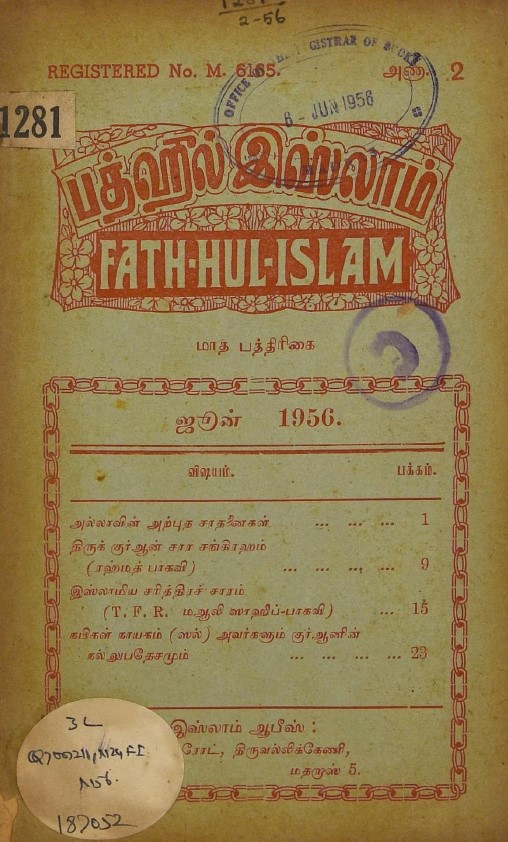 2-56
REGISTERED No. M. 6165.
அண. 2
OFFICE REGISTRAR OF BOOKS
6 - JUN 1956
1281
பத்ஹுல் இஸ்லாம்
FATH-HUL-ISLAM
மாத பத்திரிகை
ஜூன் 1956.
விஷயம். பக்கம்.
அல்லாவின் அற்புத சாதனைகள் ... ... ... 1
திருக் குர்ஆன் சார சங்கிரஹம்
(ரஹ்மத் பாகவி) ... ... ... ... 9
இஸ்லாமிய சரித்திரச் சாரம்
(T. F. R. மஆலி ஸாஹிப்-பாகவி) ... 15
நபிகள் நாயகம் (ஸல்) அவர்களும் குர்ஆனின்
நல்லுபதேசமும் ... ... ... ... 23
இஸ்லாம் ஆபீஸ் :
ரோட், திருவல்லிக்கேணி,
மதராஸ் 5.
3L
N56.
187052